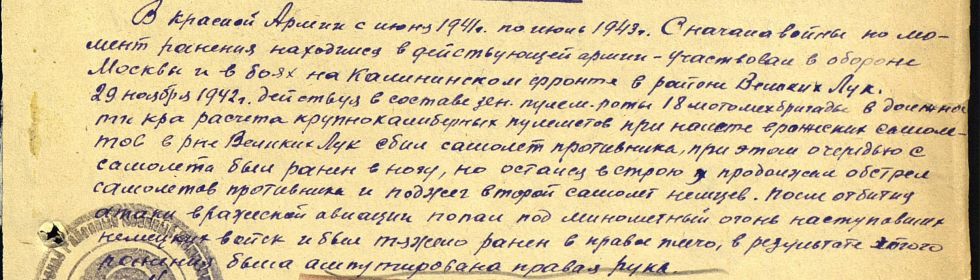 В Красной Армии с июня 1941г. по июнь 1943г. С начала войны по мо-
мент ранения находился в действующей армии - участвовал в обороне
Москвы и в боях на Калининском фронте в районе Великих Лук.
29 ноября 1942г. действуя в составе зен. пулем. роты 18 мотомехбригады в должнос
ти к-ра расчета крупнокалиберных пулеметов при налете вражеских самоле-
тов в р-не Великих Лук сбил самолет противника, при этом очередью с
самолета был ранен в ногу, но остался в строю продолжал обстрел
самолетов противника и поджег второй самолет немцев. После отбития
атаки вражеской авиации попал под минометный огонь наступавших
немецких войск и был тяжело ранен в правое плечо, в результате этого
ранения была ампутирована правая рука.